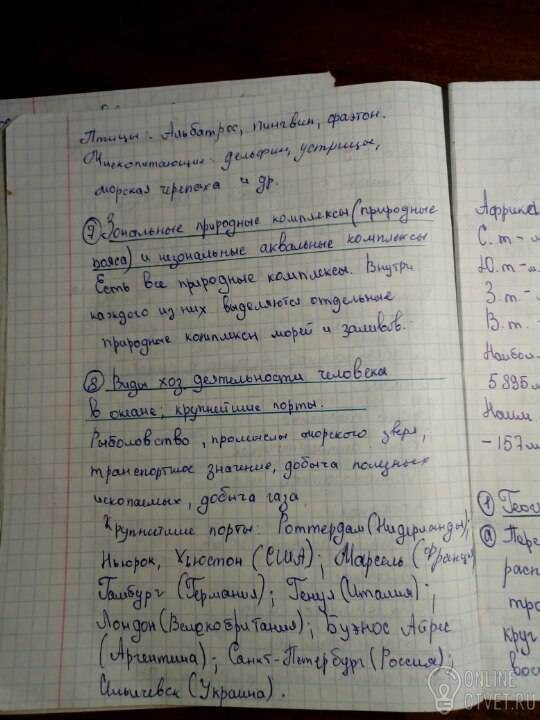 Птицы: Альбатрос, пингвин, фаэтон.
Млекопитающие: дельфин, устрицы,
морская черепаха и др.
7 Зональные природные комплексы (природные
пояса) и незональные аквальные комплексы
Есть все природные комплексы. Внутри
каждого из них выделяются отдельные
природные комплексы морей и заливов.
8 Виды хоз. деятельности человека
в океане; крупнейшие порты.
Рыболовство, промыслы морского зверя,
транспортное значение, добыча полезных
ископаемых, добыча газа
Крупнейшие порты: Роттердам (Нидерланды);
Ньюрок, Хьюстон (США); Марсель (Франция
Гамбург (Германия); Генуя (Италия);
Лондон (Велокобритания); Буэнос Айрес
(Аргентина); Санкт-Петербург (Россия);
Ильичевск (Украина).
Африка
С. т -
Ю. т -
З. т. -
В. т. -
Наибол.
5895 м
Наим.
-157 м
1 Геог
а Пере
расп
тро
круг
вос
ONLINE
OTVET.RU